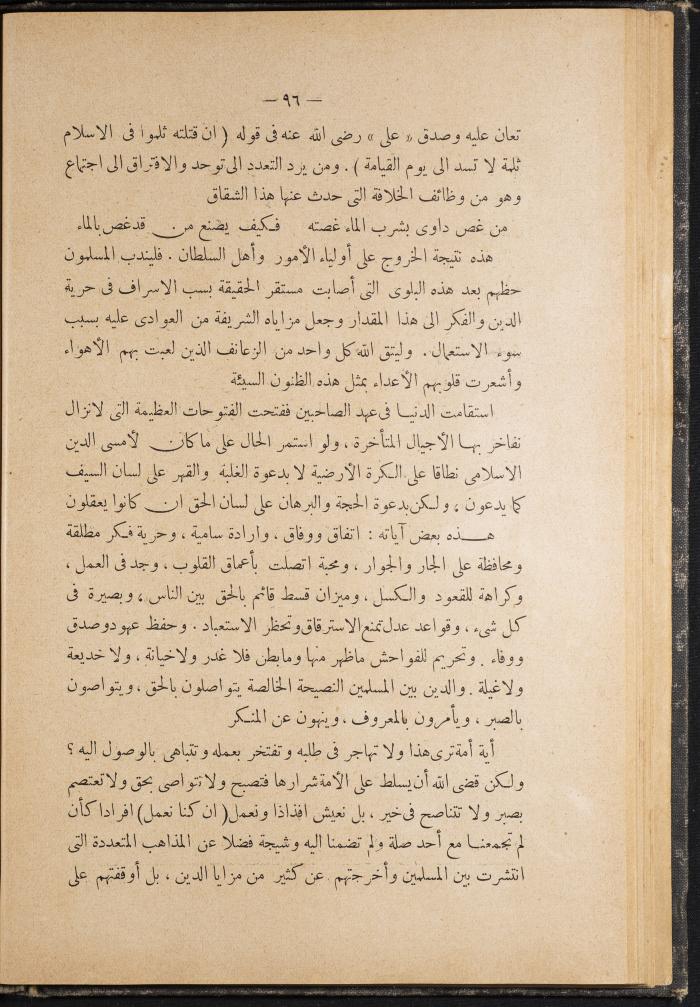 — ٩٦ —
تعان عليه وصدق « على » رضى الله عنه فى قوله ( ان قتلته ثلموا فى الاسلام
ثلمة لا تسد الى يوم القيامة ) . ومن يرد التعدد الى توحد والافتراق الى اجتماع
وهو من وظائف الخلافة التى حدث عنها هذا الشقاق
من غص داوى بشرب الماء غصته فكيف يصنع من قد غص بالماء
هذه نتيجة الخروج على أولياء الأمور وأهل السلطان . فليندب المسلمون
حظهم بعد هذه البلوى التى أصابت مستقر الحقيقة بسبب الاسراف فى حرية
الدين والفكر الى هذا المقدار وجعل مزاياه الشريفة من العوادى عليه بسبب
سوء الاستعمال . وليتق الله كل واحد من الزعانف الذين لعبت بهم الأهواء
وأشعرت قلوبهم الأعداء بمثل هذه الظنون السيئة
استقامت الدنيا فى عهد الصاحبين ففتحت الفتوحات العظيمة التى لا تزال
تفاخر بها الأجيال المتأخرة ، ولو استمر الحال على ما كان لأمسى الدين
الاسلامى نطاقا على الكرة الأرضية لا بدعوة الغلبة والقهر على لسان السيف
كما يدعون ، ولكن بدعوة الحجة والبرهان على لسان الحق ان كانوا يعقلون
هذه بعض آياته : اتفاق ووفاق ، وارادة سامية ، وحرية فكر مطلقة
ومحافظة على الجار والجوار ، ومحبة اتصلت بأعماق القلوب ، وجد فى العمل ،
وكراهة للقعود والكسل ، وميزان قسط قائم بالحق بين الناس ، وبصيرة فى
كل شىء ، وقواعد عدل تمنع الاسترقاق وتحظر الاستعباد . وحفظ عهود وصدق
ووفاء . وتحريم للفواحش ماظهر منها ومابطن فلا غدر ولا خيانة ، ولا خديعة
ولا غيلة . والدين بين المسلمين النصيحة الخالصة يتواصلون بالحق ، ويتواصون
بالصبر ، ويأمرون بالمعروف ، وينهون عن المنكر
أية أمة ترى هذا ولا تهاجر فى طلبه وتفتخر بعمله وتتباهى بالوصول اليه ؟
ولكن قضى الله أن يسلط على الأمة شرارها فتصبح ولا تتواصى بحق ولا تعتصم
بصبر ولا تتناصح فى خير ، بل نعيش افذاذا ونعمل ( ان كنا نعمل ) افرادا كأن
لم تجمعنا مع أحد صلة ولم تضمنا اليه وشيجة فضلا عن المذاهب المتعددة التى
انتشرت بين المسلمين وأخرجتهم عن كثير من مزايا الدين ، بل أوقفتهم على